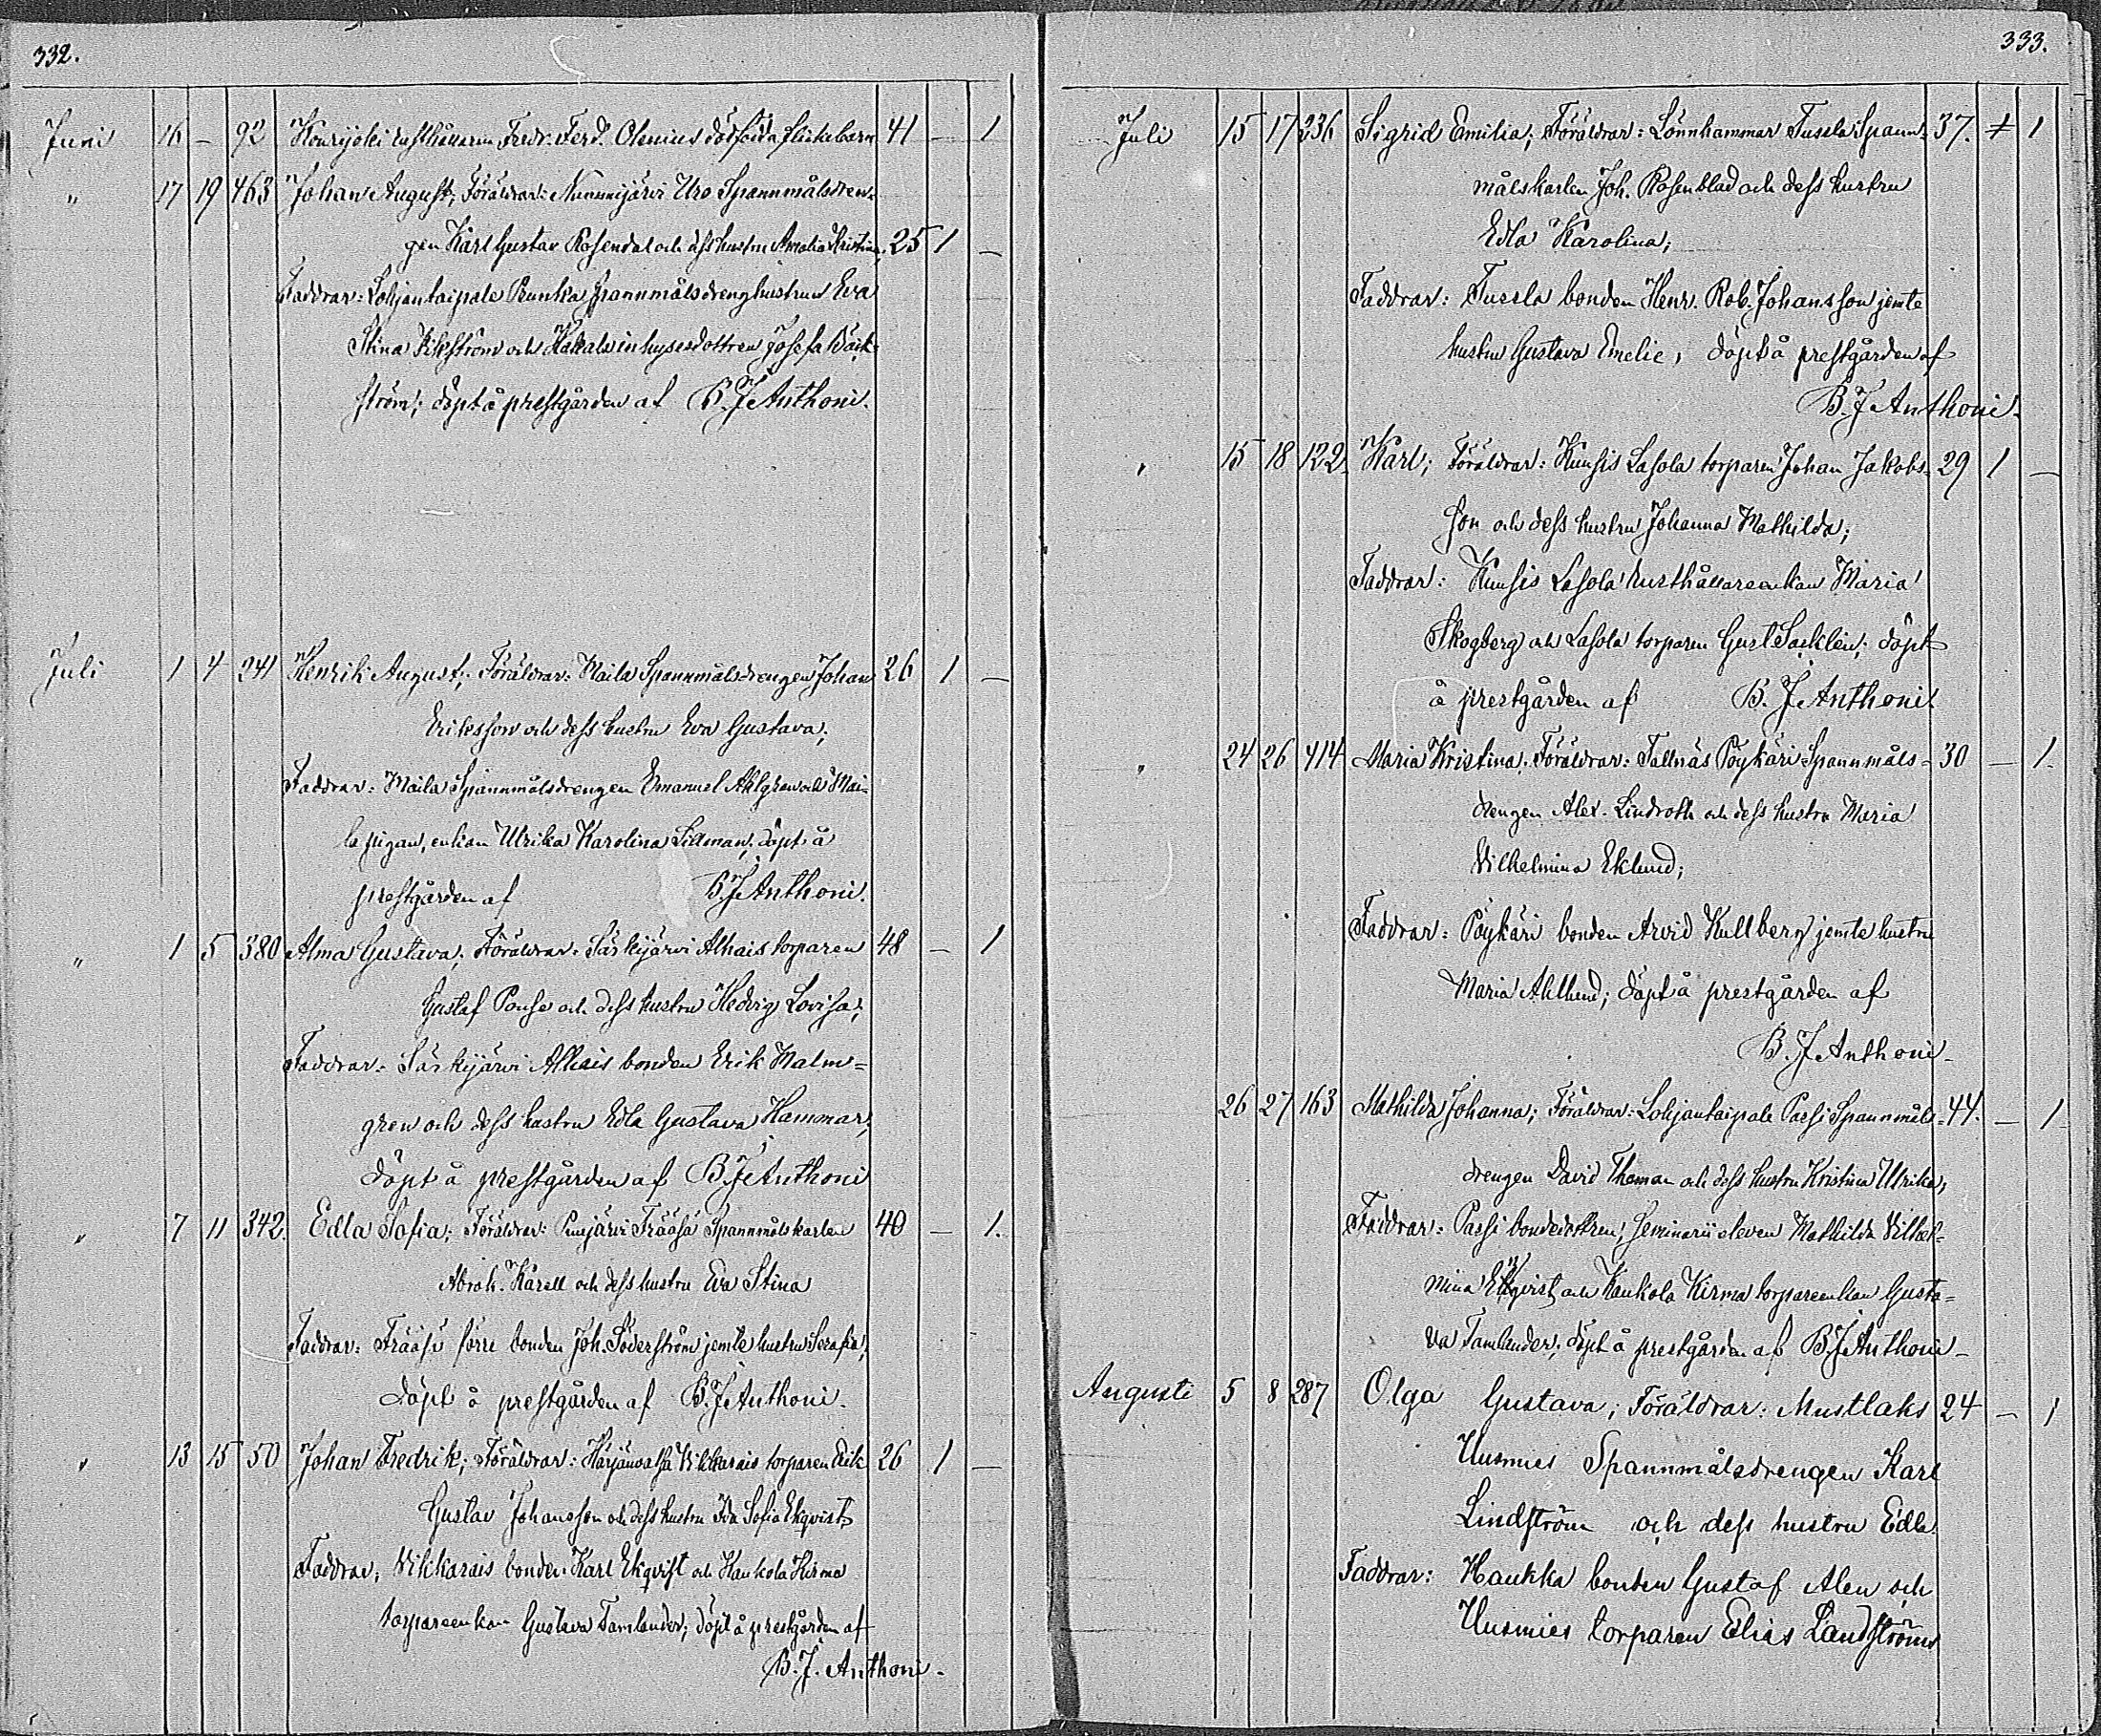 332.
Juni 16 – 92 Honrijoki rusthållaren Fredr. Ferd. Olenius dödfödda flickebarn 41 – 1
" 17 19 463 Johan August; Föräldrar: Nummijärvi Uro Spannmålsdren-
gen Karl Gustav Rosendal och dess hustru Amalia Kristina; 25 1 –
Faddrar: Lohjantaipale Runka spannmålsdrenghustrun Eva
Stina Vikström och inhysesdottren Josefa Bäck-
ström; döpt å prestgården af B. J. Anthoni.
Juli 1 4 241 Henrik August; Föräldrar: Maila Spannmålsdrengen Johan 26 1 –
Eriksson och dess hustru Eva Gustava;
Faddrar: Maila Spannmålsdrengen Emanuel Ahlgren och Mai-
la pigan, enkan Ulrika Karolina Lidman; döpt å
prestgården af B. J. Anthoni.
" 1 5 380 Alma Gustava; Föräldrar: Särkijärvi Alhais torparen 48 – 1
Gustaf Ponse och dess hustru Hedvig Lovisa;
Faddrar: Särkijärvi Alhais bonden Erik Malm=
gren och dess hustru Edla Gustava Hammar;
döpt å prestgården af B. J. Anthoni
" 7 11 342. Edla Sofia; Föräldrar: Puujärvi Trääsä Spannmålskarlen 40 – 1.
Abrah. Karell och dess hustru Eva Stina
Faddrar: Trääsä förre bonden Joh. Söderström jemte hustru Serafia;
döpt å prestgården af B. J. Anthoni.
" 13 15 50 Johan Fredrik; Föräldrar: Härjänvatsa Vikkarais torparen Erik 26 1 –
Gustav Johansson och dess hustru Ida Sofia Ekqvist;
Faddrar; Vikkarais bonden Karl Ekqvist och Kaukola Kirma
torpareenkan Gustava Tamlander; döpt å prestgården af
B. J. Anthoni.
333.
Juli 15 17 236 Sigrid Emilia; Föräldrar: Lönnhammar Tussla Spann- 37. + 1
målskarlen Joh. Rosenblad och dess hustru
Edla Karolina;
Faddrar: Tussla bonden Henr. Rob. Johansson jemte
hustru Gustava Emelie, döpt å prestgården af
B. J. Anthoni.
" 15 18 122. Karl; Föräldrar: Kunsis Lasola torparen Johan Jakobs- 29 1 –
son och dess hustru Johanna Mathilda;
Faddrar: Kunsis Lasola rusthållareenkan Maria
Skogberg och Lasola torparen Gust Sacklén; döpt
å prestgården af B. J. Anthoni
" 24 26 414 Maria Kristina; Föräldrar: Tallnäs Pöykäri Spannmåls- 30 – 1.
drengen Alex. Lindroth och dess hustru Maria
Vilhelmina Eklund;
Faddrar: Pöykäri bonden Arvid Kullberg jemte hustru
Maria Ahllund; döpt å prestgården af
B. J. Anthoni.
26 27 163 Mathilda Johanna; Föräldrar: Lohjantaipale Passi Spannmåls- 44. – 1
drengen David Thoman och dess hustru Kristina Ulrika;
Faddrar: Passi bondedottren, Seminarii eleven Mathilda Vilhel-
mina Ekqvist och Kaukola Kirma torpareenkan Gusta=
va Tamlander; döpt å prestgården af B. J. Anthoni.
Augusti 5 8 287 Olga Gustava; Föräldrar: Mustlaks 24 – 1
Uusmies Spannmålsdrengen Karl
Lindström och dess hustru Edla.
Faddrar: Haukka bonden Gustaf Alen och
Uusmies torparen Elias Landström